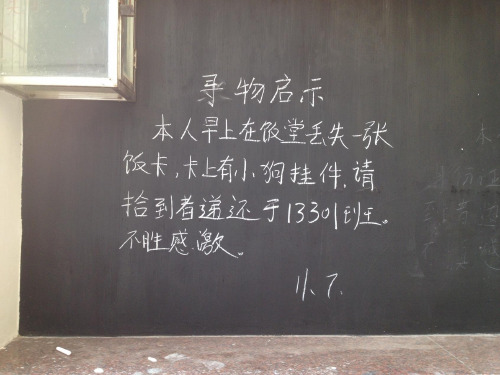 寻物启示
本人早上在饭堂丢失一张
饭卡,卡上有小狗挂件,请
拾到者递还于13301班。
不胜感激。